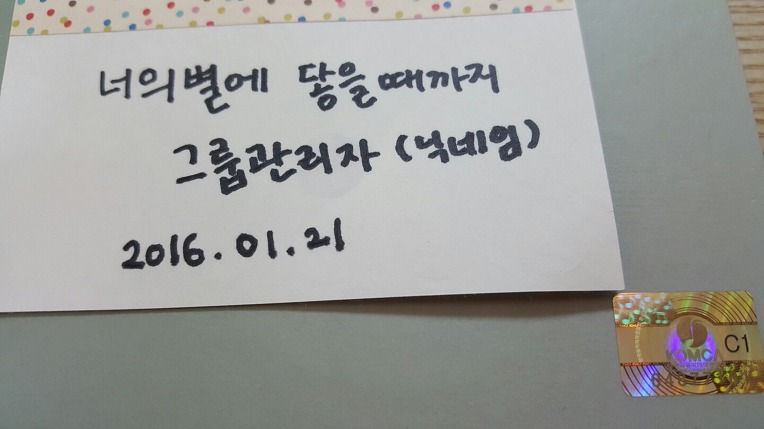 너의별에 닿을때까지
그룹관리자 (닉네임)
2016.01.21
KOMCA
C1